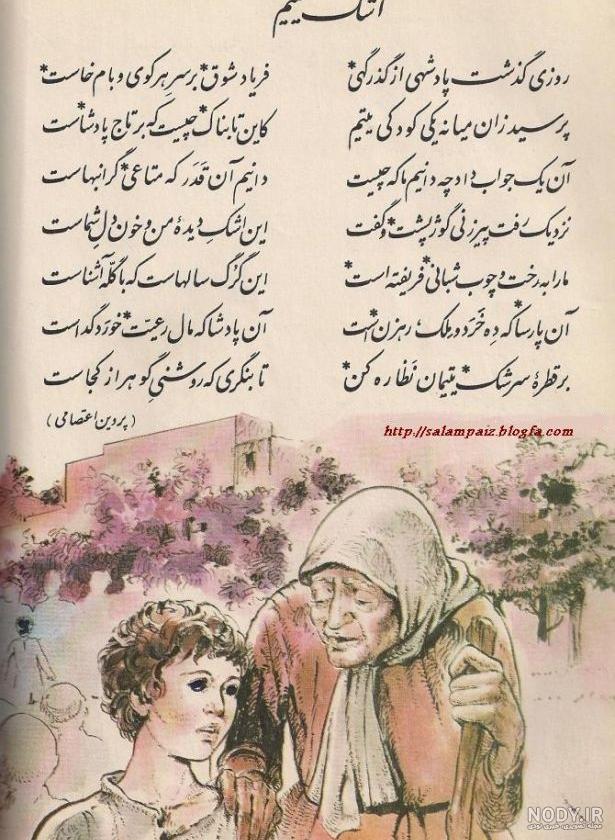 اشک یتیم
روزی گذشت پادشهی از گذرگهی* فریاد شوق* بر سر هر کوی و بام خاست*
پرسید زان میانه یکی کودکی یتیم کاین تابناک* چیست که بر تاج پادشاست
آن یک جواب داد چه دانیم ما که چیست دانیم آن قَدَر که متاعی* گرانبهاست
نزدیک رفت پیرزنی گوژپشت* و گفت این اشکِ دیدهٔ من و خون دلِ شماست
ما را به رخت و چوب شبانی* فریفته است* این گرگ سالهاست که با گلّه آشناست
آن پارسا* که دِه خَرَد و مِلک، رهزن* است آن پادشا که مال رعیّت* خورَد گداست
بر قطرهٔ سرشک* یتیمان نظاره کن* تا بنگری که روشنیِ گوهر از کجاست
(پروین اعتصامی)
http://salampaiz.blogfa.com
NODY.IR